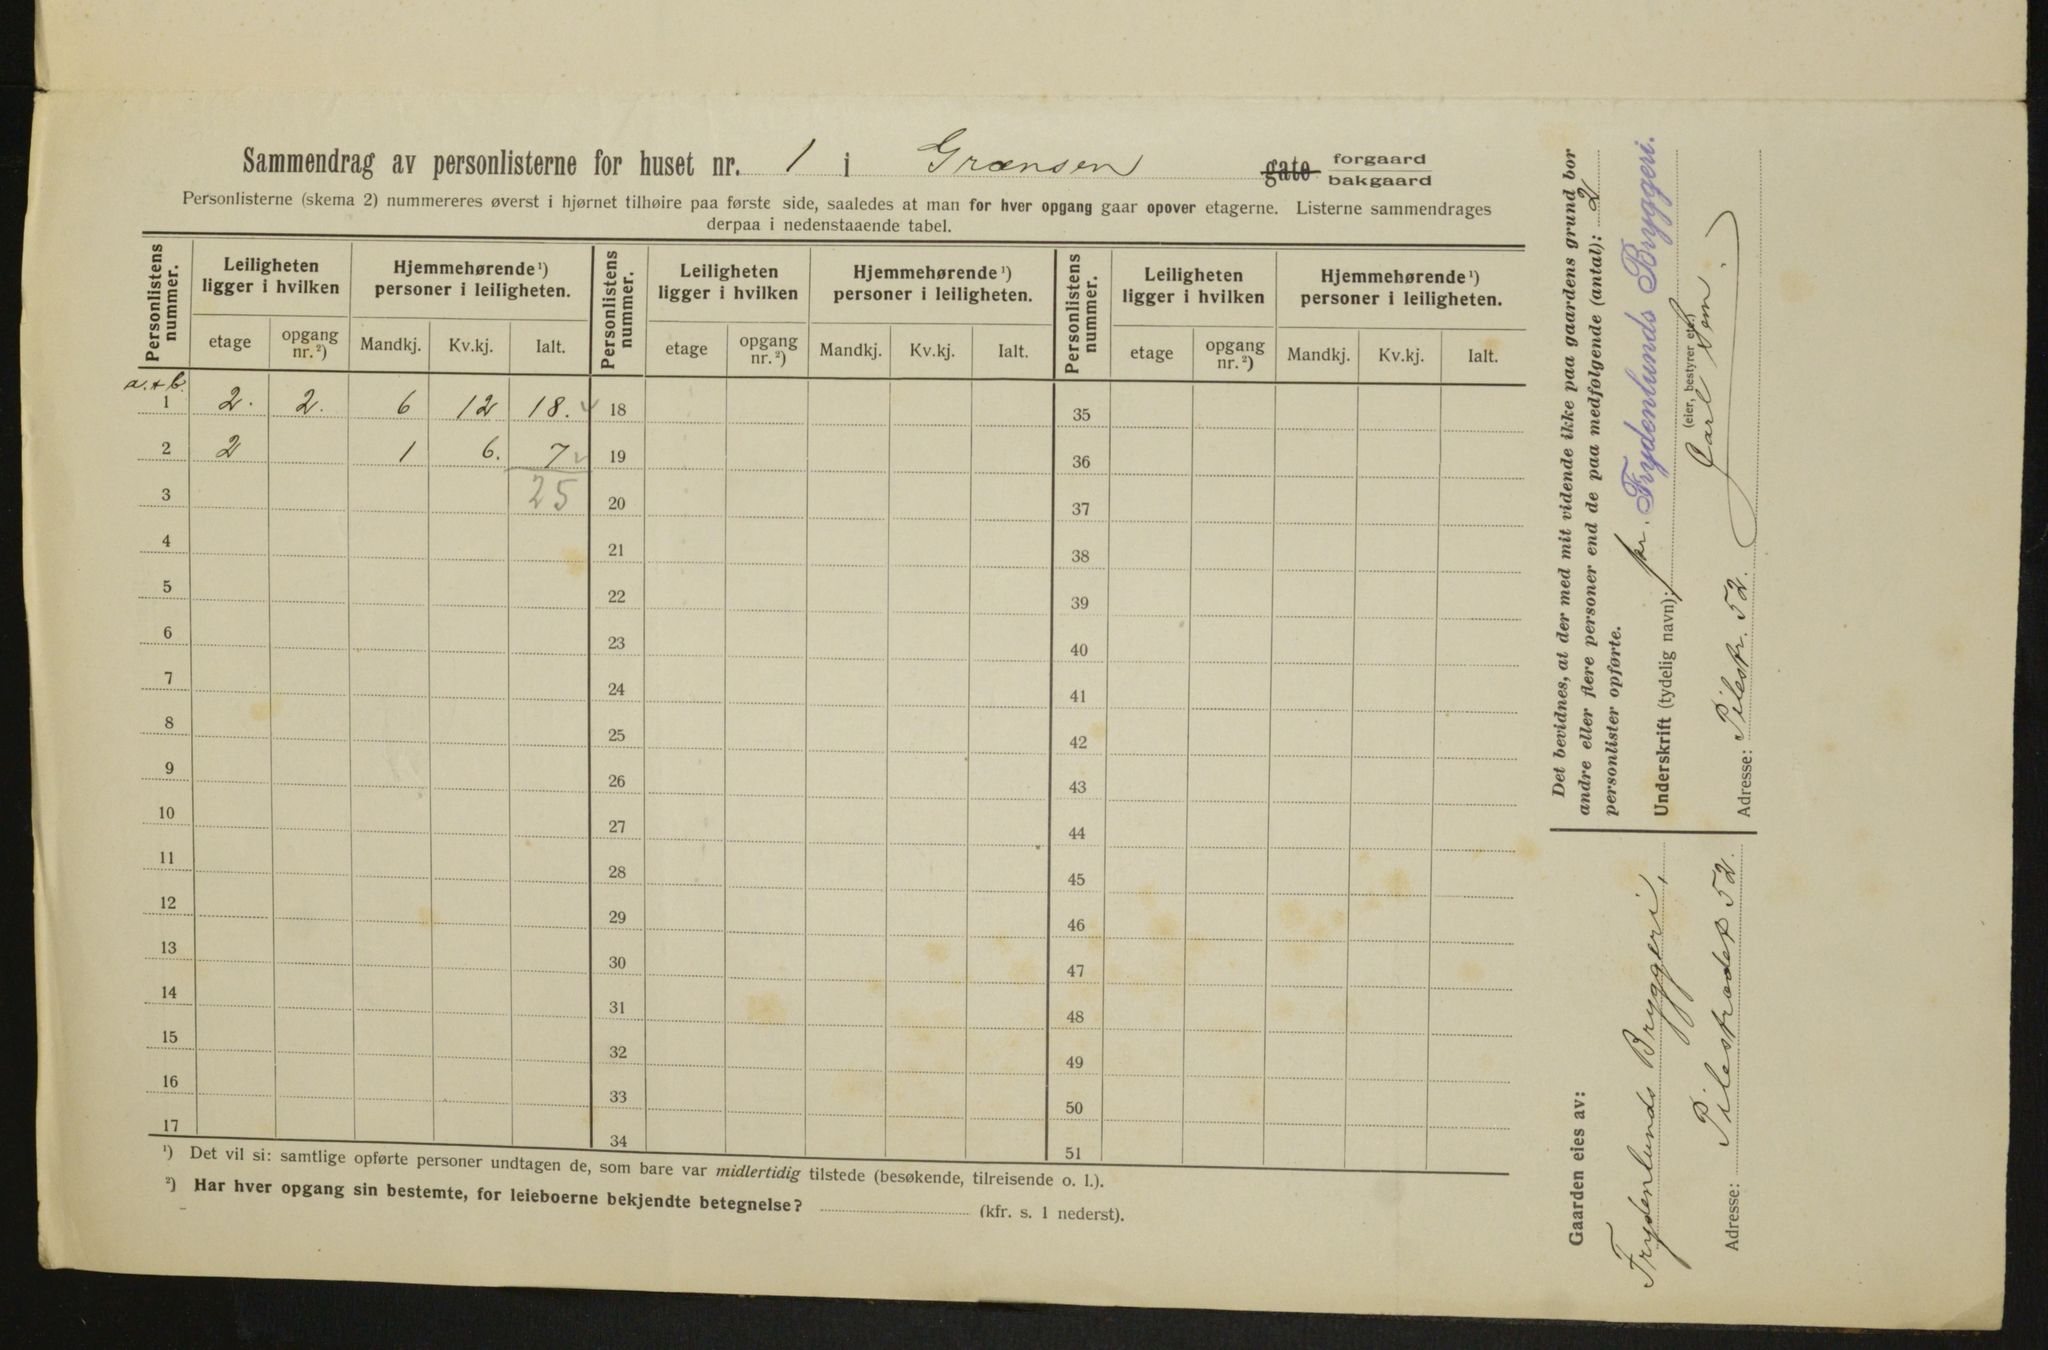 Sammendrag av personlisterne for huset nr. 1 i Grænsen gate forgaard bakgaard
Personlisterne (skema 2) nummereres øverst i hjørnet tilhøire paa første side, saaledes at man for hver opgang gaar opover etagerne. Listerne sammendrages
derpaa i nedenstaaende tabel.
Personlistens nummer. Leiligheten ligger i hvilken Hjemmehørende ¹) personer i leiligheten. Personlistens nummer. Leiligheten ligger i hvilken Hjemmehørende ¹) personer i leiligheten. Personlistens nummer. Leiligheten ligger i hvilken Hjemmehørende ¹) personer i leiligheten.
etage opgang nr. ²) Mandkj. Kv.kj. Ialt. etage opgang nr. ²) Mandkj. Kv.kj. Ialt. etage opgang nr. ²) Mandkj. Kv.kj. Ialt.
a. + b.
1 2. 2. 6 12 18. 18 35
2 2 1 6. 7 19 36
3 25 20 37
4 21 38
5 22 39
6 23 40
7 24 41
8 25 42
9 26 43
10 27 44
11 28 45
12 29 46
13 30 47
14 31 48
15 32 49
16 33 50
17 34 51
¹) Det vil si: samtlige opførte personer undtagen de, som bare var midlertidig tilstede (besøkende, tilreisende o. l.).
²) Har hver opgang sin bestemte, for leieboerne bekjendte betegnelse? (kfr. s. 1 nederst).
Det bevidnes, at der med mit vidende ikke paa gaardens grund bor
andre eller flere personer end de paa medfølgende (antal): 2
personlister opførte.
pr. Frydenlunds Bryggeri.
Underskrift (tydelig navn):
(eier, bestyrer etc.)
Carl
Adresse: Pilestr. 52.
Gaarden eies av:
Frydenlunds Bryggeri,
Adresse: Pilestrædet 52.